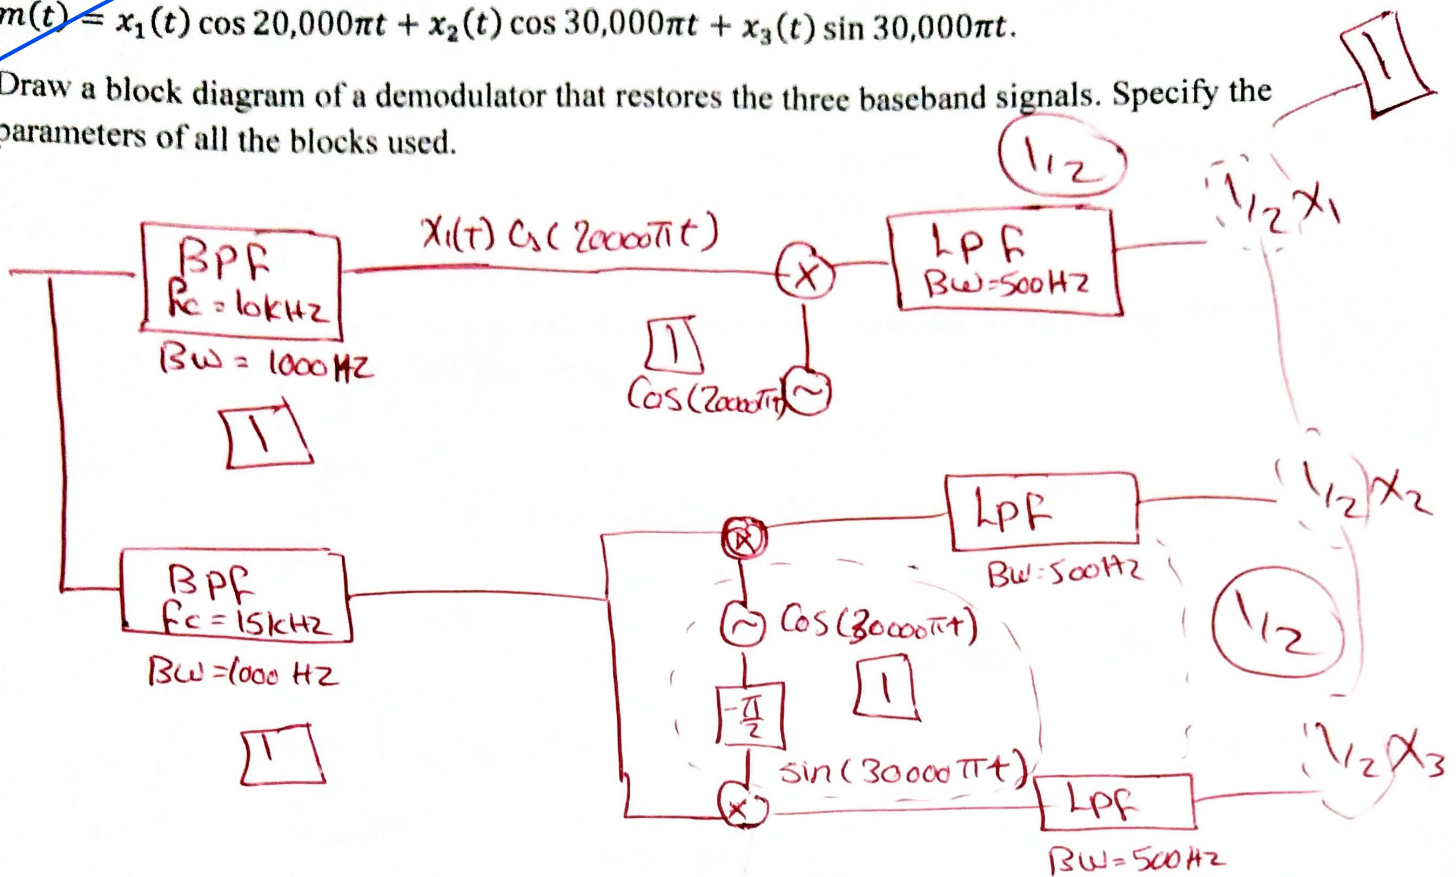 m(t) = x₁(t) cos 20,000πt + x₂(t) cos 30,000πt + x₃(t) sin 30,000πt.
Draw a block diagram of a demodulator that restores the three baseband signals. Specify the
parameters of all the blocks used.
1
1/2
1/2 X₁
BPF
fc = 10kHz
BW = 1000 Hz
1
X₁(t) Cos(20000πt)
X
1
Cos(20000πt)
~
LPF
BW=500Hz
BPF
fc = 15kHz
BW=1000 Hz
1
X
~ Cos(30000πt)
-π/2
1
sin(30000πt)
X
LPF
BW=500Hz
1/2 X₂
1/2
LPF
BW=500Hz
1/2 X₃